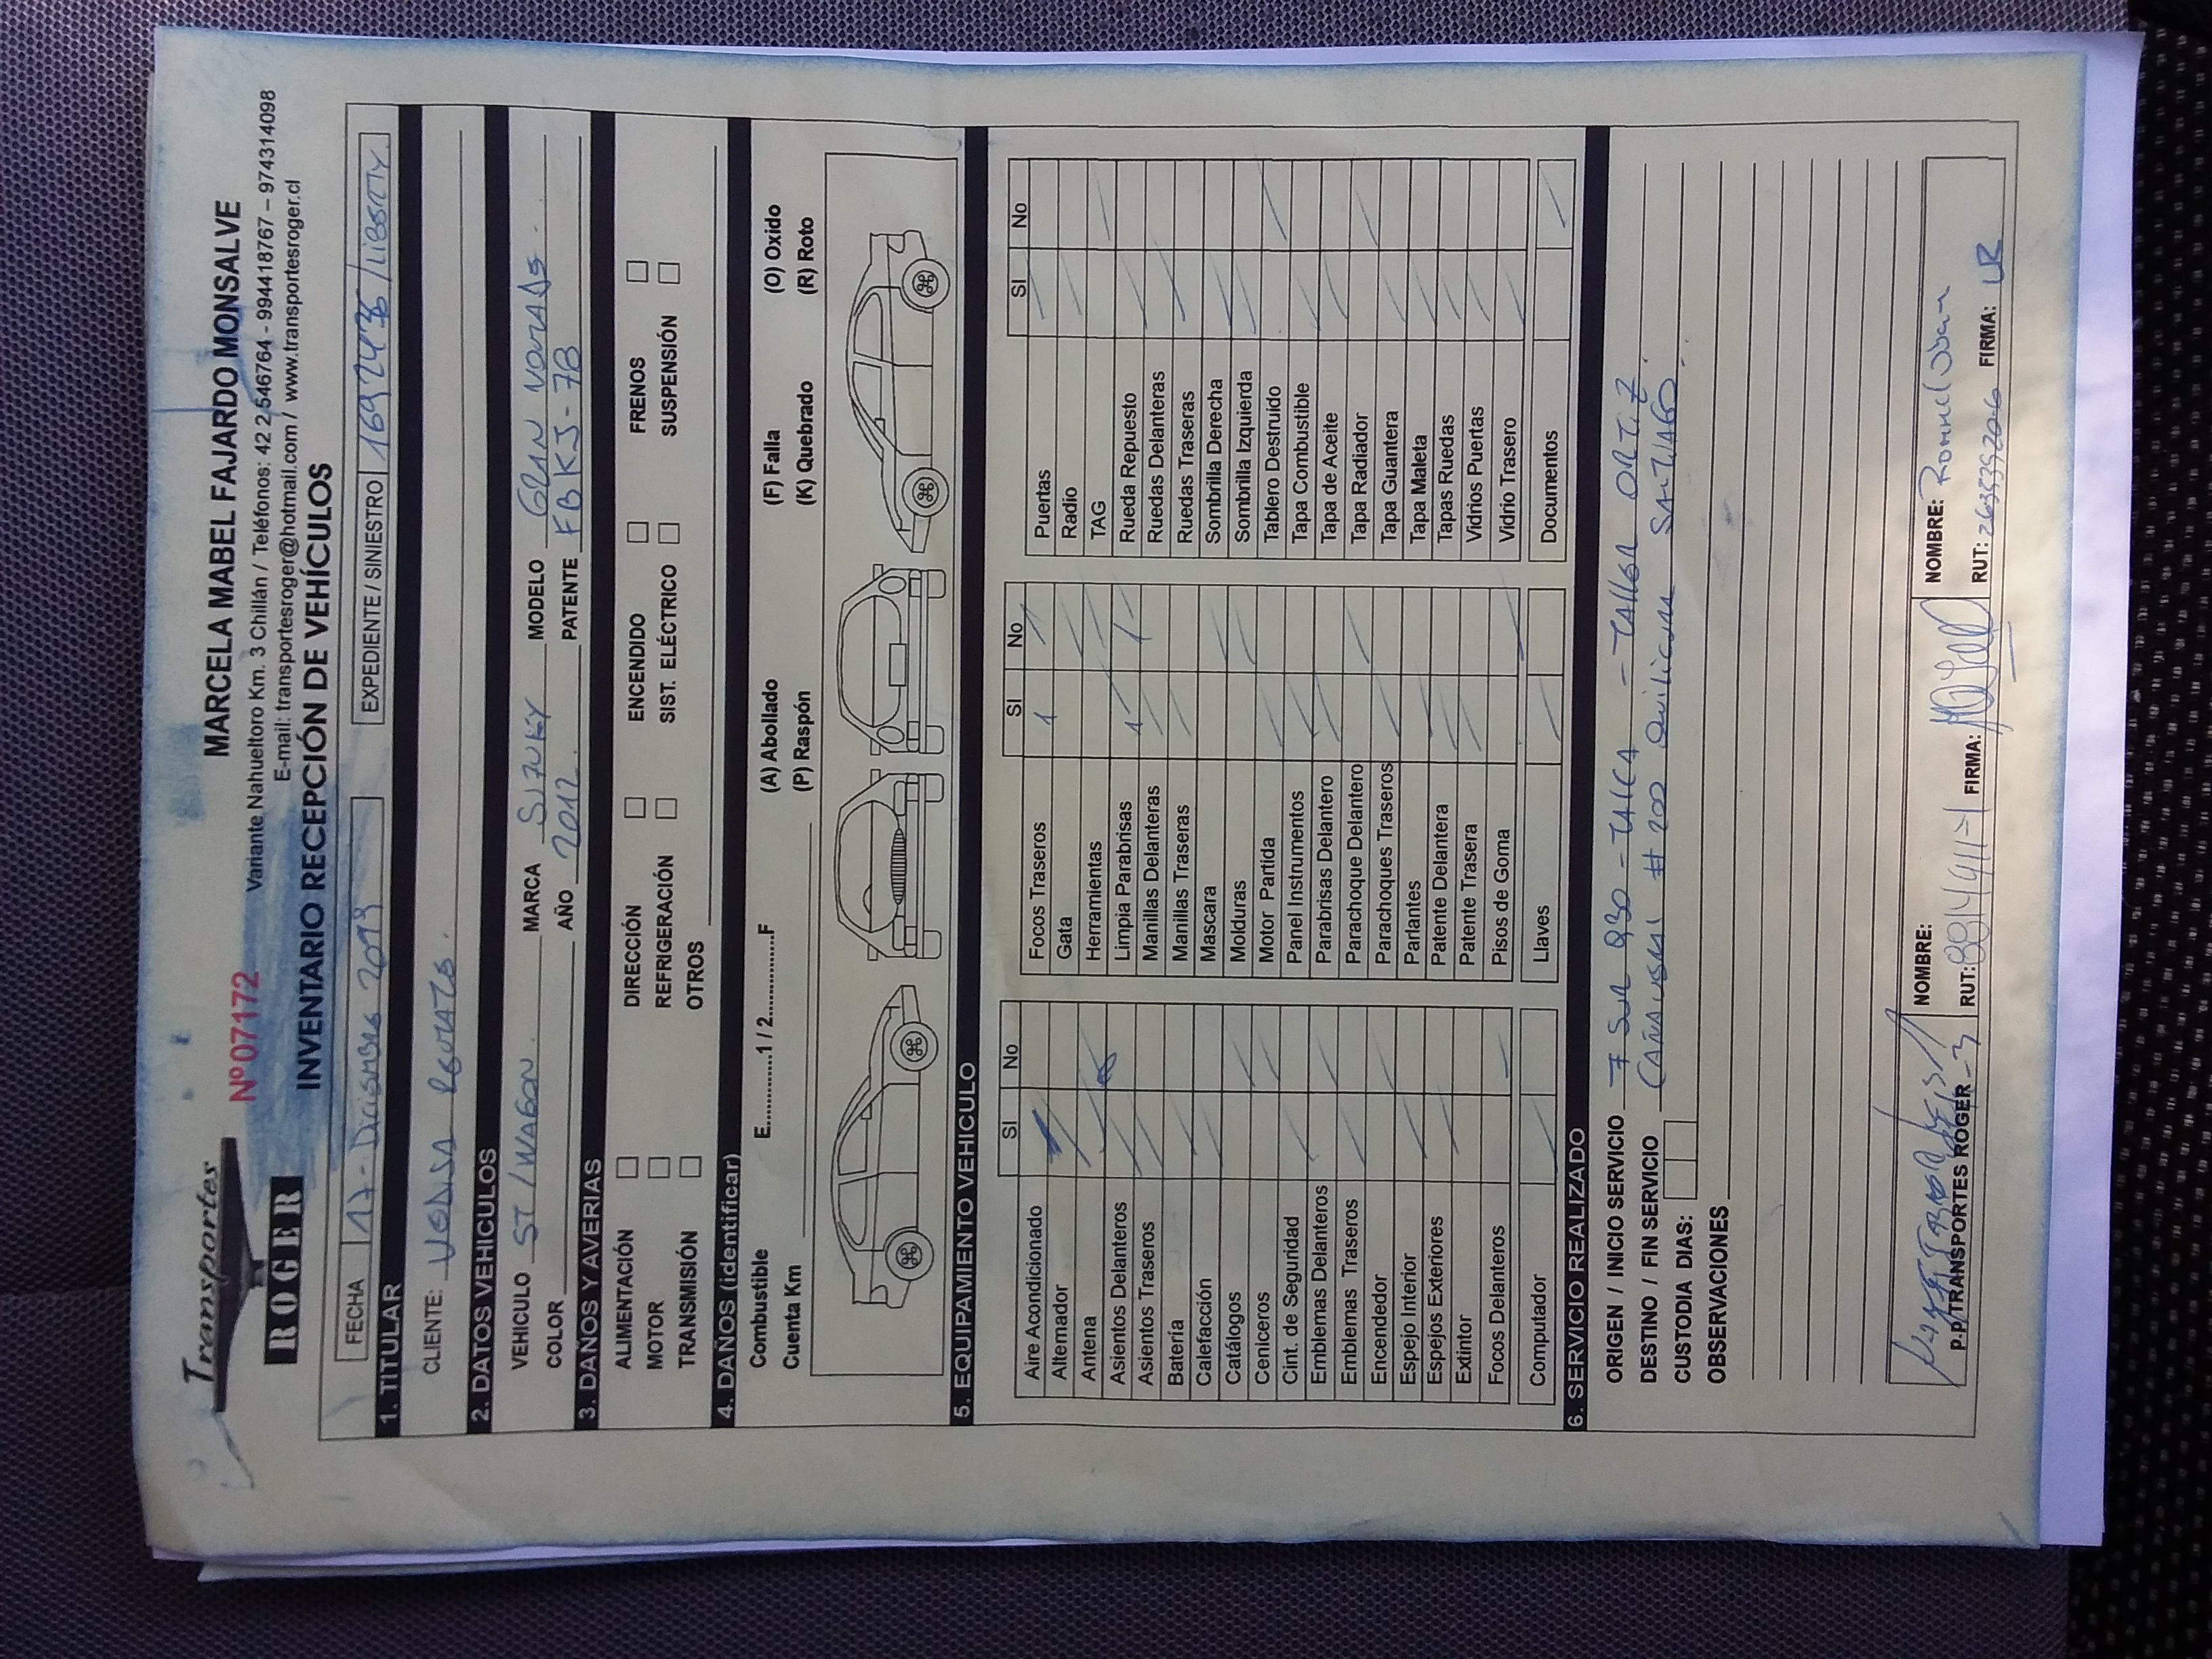 Transportes
ROGER
Nº 07172
MARCELA MABEL FAJARDO MONSALVE
Variante Nahueltoro Km. 3 Chillán / Teléfonos: 42 2 546764 - 994418767 – 974314098
E-mail: transportesroger@hotmail.com / www.transportesroger.cl
INVENTARIO RECEPCIÓN DE VEHÍCULOS
FECHA 17-Diciembre 2019 EXPEDIENTE / SINIESTRO 16924736 / Liberty
1. TITULAR
CLIENTE:
2. DATOS VEHICULOS
VEHICULO ST/WAGON. MARCA SUZUKY MODELO
COLOR AÑO 2012. PATENTE FBKJ-78
3. DAÑOS Y AVERIAS
ALIMENTACIÓN DIRECCIÓN ENCENDIDO FRENOS
MOTOR REFRIGERACIÓN SIST. ELÉCTRICO SUSPENSIÓN
TRANSMISIÓN OTROS
4. DAÑOS (identificar)
Combustible E............1 / 2............F (A) Abollado (F) Falla (O) Oxido
Cuenta Km (P) Raspón (K) Quebrado (R) Roto
5. EQUIPAMIENTO VEHICULO
SI No SI No SI No
Aire Acondicionado Focos Traseros 1 1 Puertas
Alternador Gata Radio
Antena Herramientas TAG
Asientos Delanteros Limpia Parabrisas 1 1 Rueda Repuesto
Asientos Traseros Manillas Delanteras Ruedas Delanteras
Batería Manillas Traseras Ruedas Traseras
Calefacción Mascara Sombrilla Derecha
Catálogos Molduras Sombrilla Izquierda
Ceniceros Motor Partida Tablero Destruido
Cint. de Seguridad Panel Instrumentos Tapa Combustible
Emblemas Delanteros Parabrisas Delantero Tapa de Aceite
Emblemas Traseros Parachoque Delantero Tapa Radiador
Encendedor Parachoques Traseros Tapa Guantera
Espejo Interior Parlantes Tapa Maleta
Espejos Exteriores Patente Delantera Tapas Ruedas
Extintor Patente Trasera Vidrios Puertas
Focos Delanteros Pisos de Goma Vidrio Trasero
Computador Llaves Documentos
6. SERVICIO REALIZADO
ORIGEN / INICIO SERVICIO 7 Sur 930 - TALCA - TALLER ORTIZ
DESTINO / FIN SERVICIO # 200 Quilicura SANTIAGO
CUSTODIA DIAS:
OBSERVACIONES
p.p TRANSPORTES ROGER NOMBRE: NOMBRE:
RUT: FIRMA: RUT: FIRMA: